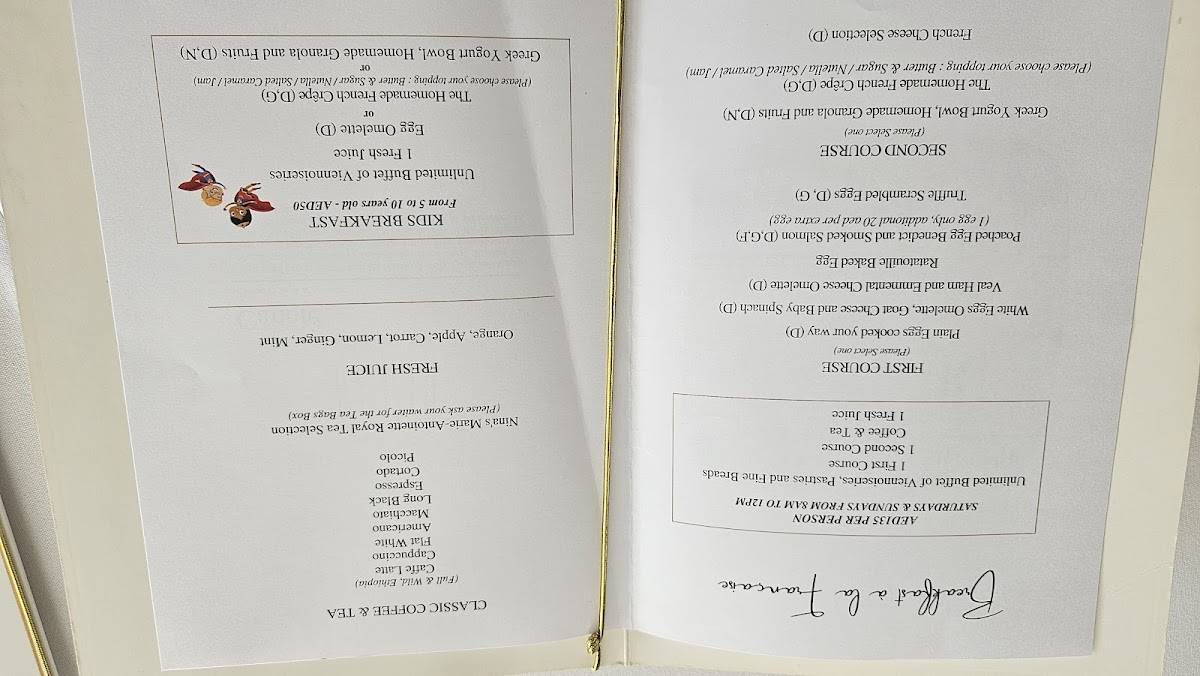 Breakfast à la Française
AED135 PER PERSON
SATURDAYS & SUNDAYS FROM 8AM TO 12PM
Unlimited Buffet of Viennoiseries, Pastries and Fine Breads
1 First Course
1 Second Course
Coffee & Tea
1 Fresh Juice
FIRST COURSE
(Please Select one)
Plain Eggs cooked your way (D)
White Eggs Omelette, Goat Cheese and Baby Spinach (D)
Veal Ham and Emmental Cheese Omelette (D)
Ratatouille Baked Egg
Poached Egg Benedict and Smoked Salmon (D,G,F)
(1 egg only, additonal 20 aed per extra egg)
Truffle Scrambled Eggs (D, G)
SECOND COURSE
(Please Select one)
Greek Yogurt Bowl, Homemade Granola and Fruits (D,N)
The Homemade French Crêpe (D,G)
(Please choose your topping : Butter & Sugar / Nutella / Salted Caramel / Jam)
French Cheese Selection (D)
CLASSIC COFFEE & TEA
(Full & Wild, Ethiopia)
Caffe Latte
Cappuccino
Flat White
Americano
Macchiato
Long Black
Espresso
Cortado
Picolo
Nina's Marie-Antoinette Royal Tea Selection
(Please ask your waiter for the Tea Bags Box)
FRESH JUICE
Orange, Apple, Carrot, Lemon, Ginger, Mint
KIDS BREAKFAST
From 5 to 10 years old - AED50
Unlimited Buffet of Viennoiseries
1 Fresh Juice
Egg Omelette (D)
or
The Homemade French Crêpe (D,G)
(Please choose your topping : Butter & Sugar / Nutella / Salted Caramel / Jam)
or
Greek Yogurt Bowl, Homemade Granola and Fruits (D,N)